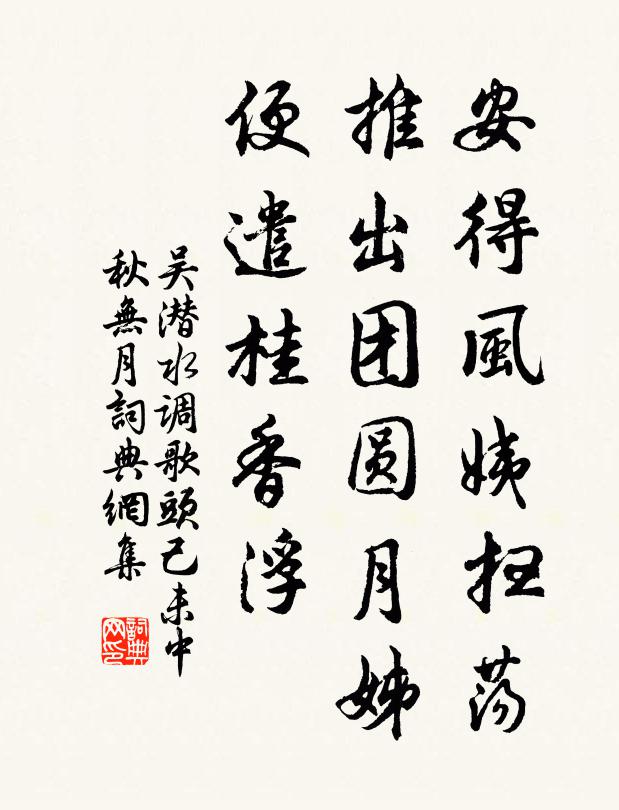 安得風姨抂荡
推出团圆月姊
便遣桂香浮
吴潜水调歌頭己未中
秋無月詞典網集
詞典网印